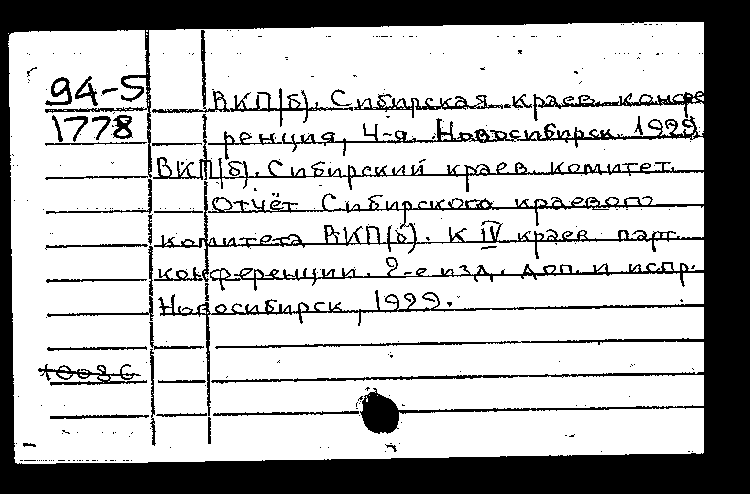 94-5
1778
ВКП(б). Сибирская краев. конфе
ренция, 4-я. Новосибирск. 1929.
ВКП(б). Сибирский краев. комитет.
Отчёт Сибирского краевого
комитета ВКП(б). К IV краев. парт.
конференции. 2-е изд. доп. и испр.
Новосибирск, 1929.